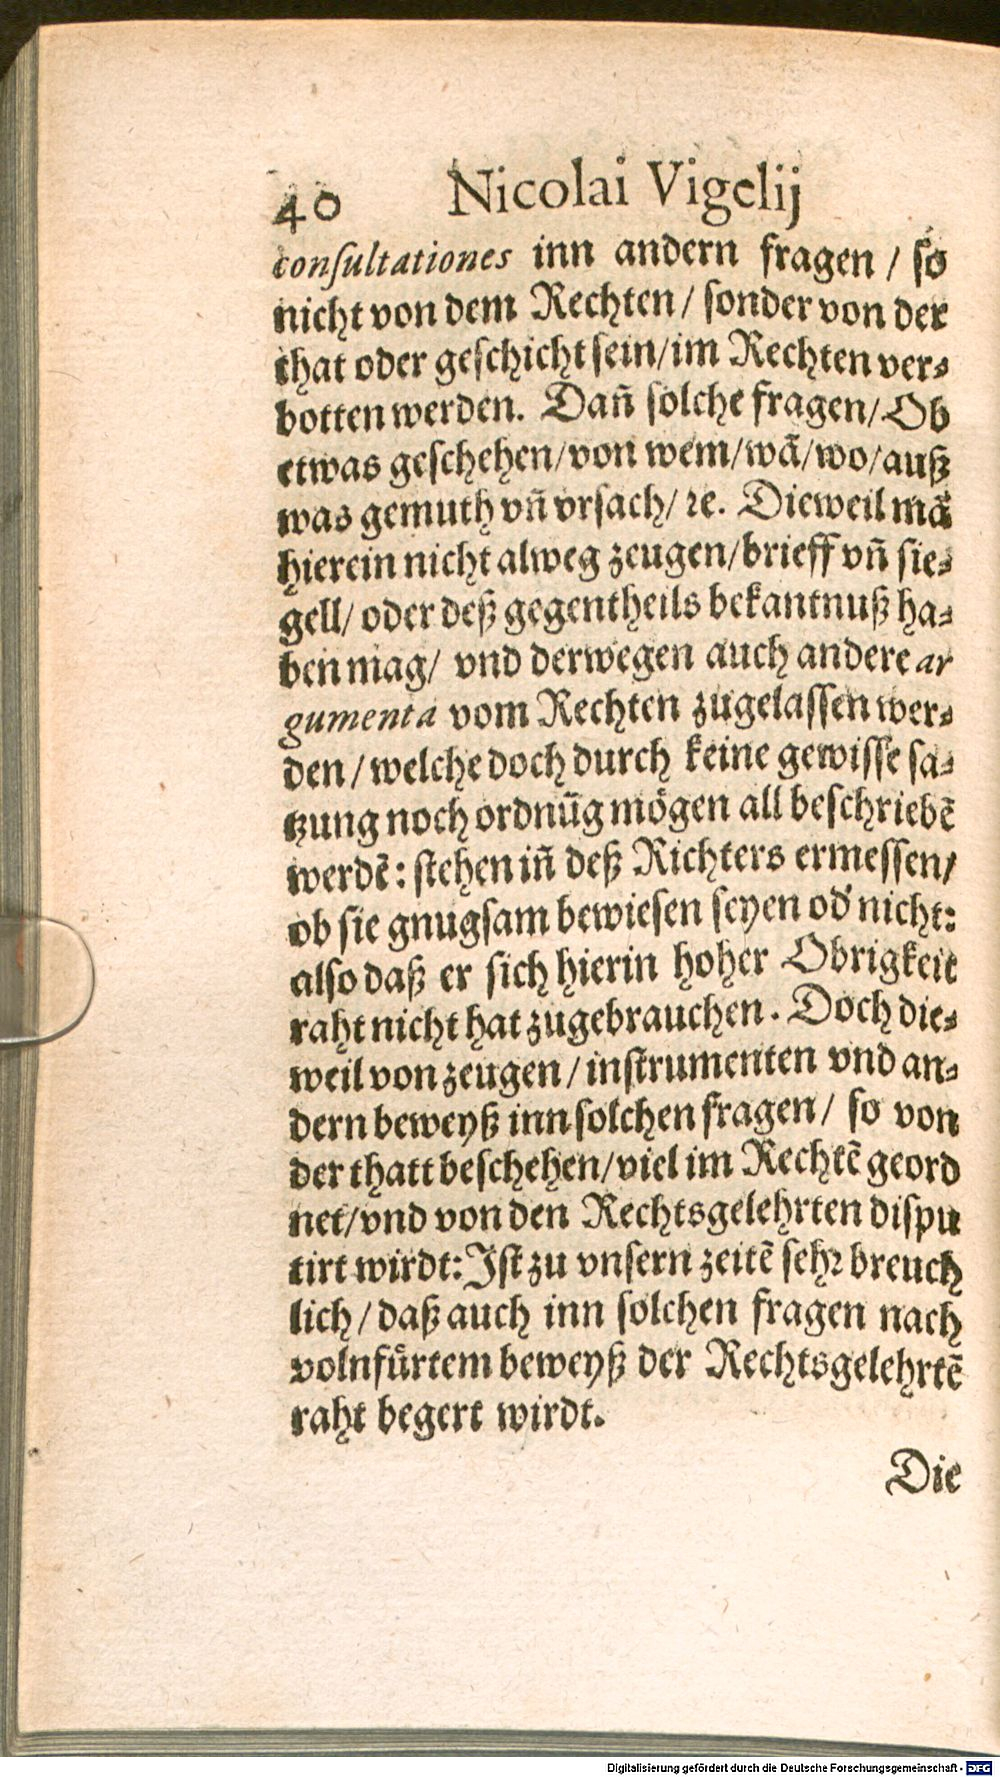 40 Nicolai Vigelij
conſultationes inn andern fragen / ſo
nicht von dem Rechten / ſonder von der
that oder geſchicht ſein / im Rechten ver⸗
botten werden. Dañ ſolche fragen / Ob
etwas geſchehen / von wem / wã / wo / auß
was gemuth vñ vrſach / ꝛc. Dieweil mã
hierein nicht alweg zeugen / brieff vñ ſie⸗
gell / oder deß gegentheils bekantnuß ha⸗
ben mag / vnd derwegen auch andere ar
gumenta vom Rechten zugelaſſen wer⸗
den / welche doch durch keine gewiſſe ſa⸗
tzung noch ordnũg moͤgen all beſchriebẽ
werdẽ: ſtehen iñ deß Richters ermeſſen /
ob ſie gnugſam bewieſen ſeyen od' nicht:
alſo daß er ſich hierin hoher Obrigkeit
raht nicht hat zugebrauchen. Doch die⸗
weil von zeugen / inſtrumenten vnd an⸗
dern beweyß inn ſolchen fragen / ſo von
der thatt beſchehen / viel im Rechtẽ geord
net / vnd von den Rechtsgelehrten diſpu
tirt wirdt: Iſt zu vnſern zeitẽ ſehꝛ breuch
lich / daß auch inn ſolchen fragen nach
volnfuͤrtem beweyß der Rechtsgelehrtẽ
raht begert wirdt.
Die
Digitalisierung gefördert durch die Deutsche Forschungsgemeinschaft - DFG